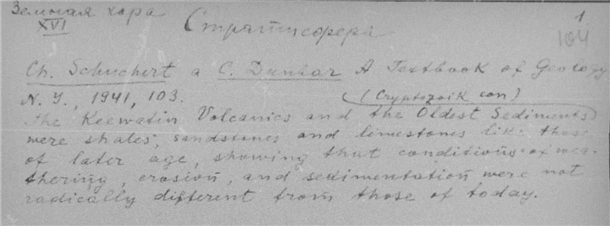 Земная кора
XVI
Стратисфера
1
104
Ch. Schuchert a C. Dunbar A Textbook of Geology
N. Y., 1941, 103.
(Cryptozoik eon)
The Keewatin Volcanics and the Oldest Sediments
were shales, sandstones and limestones like those
of later age, showing that conditions of wea-
thering, erosion, and sedimentation were not
radically different from those of today.